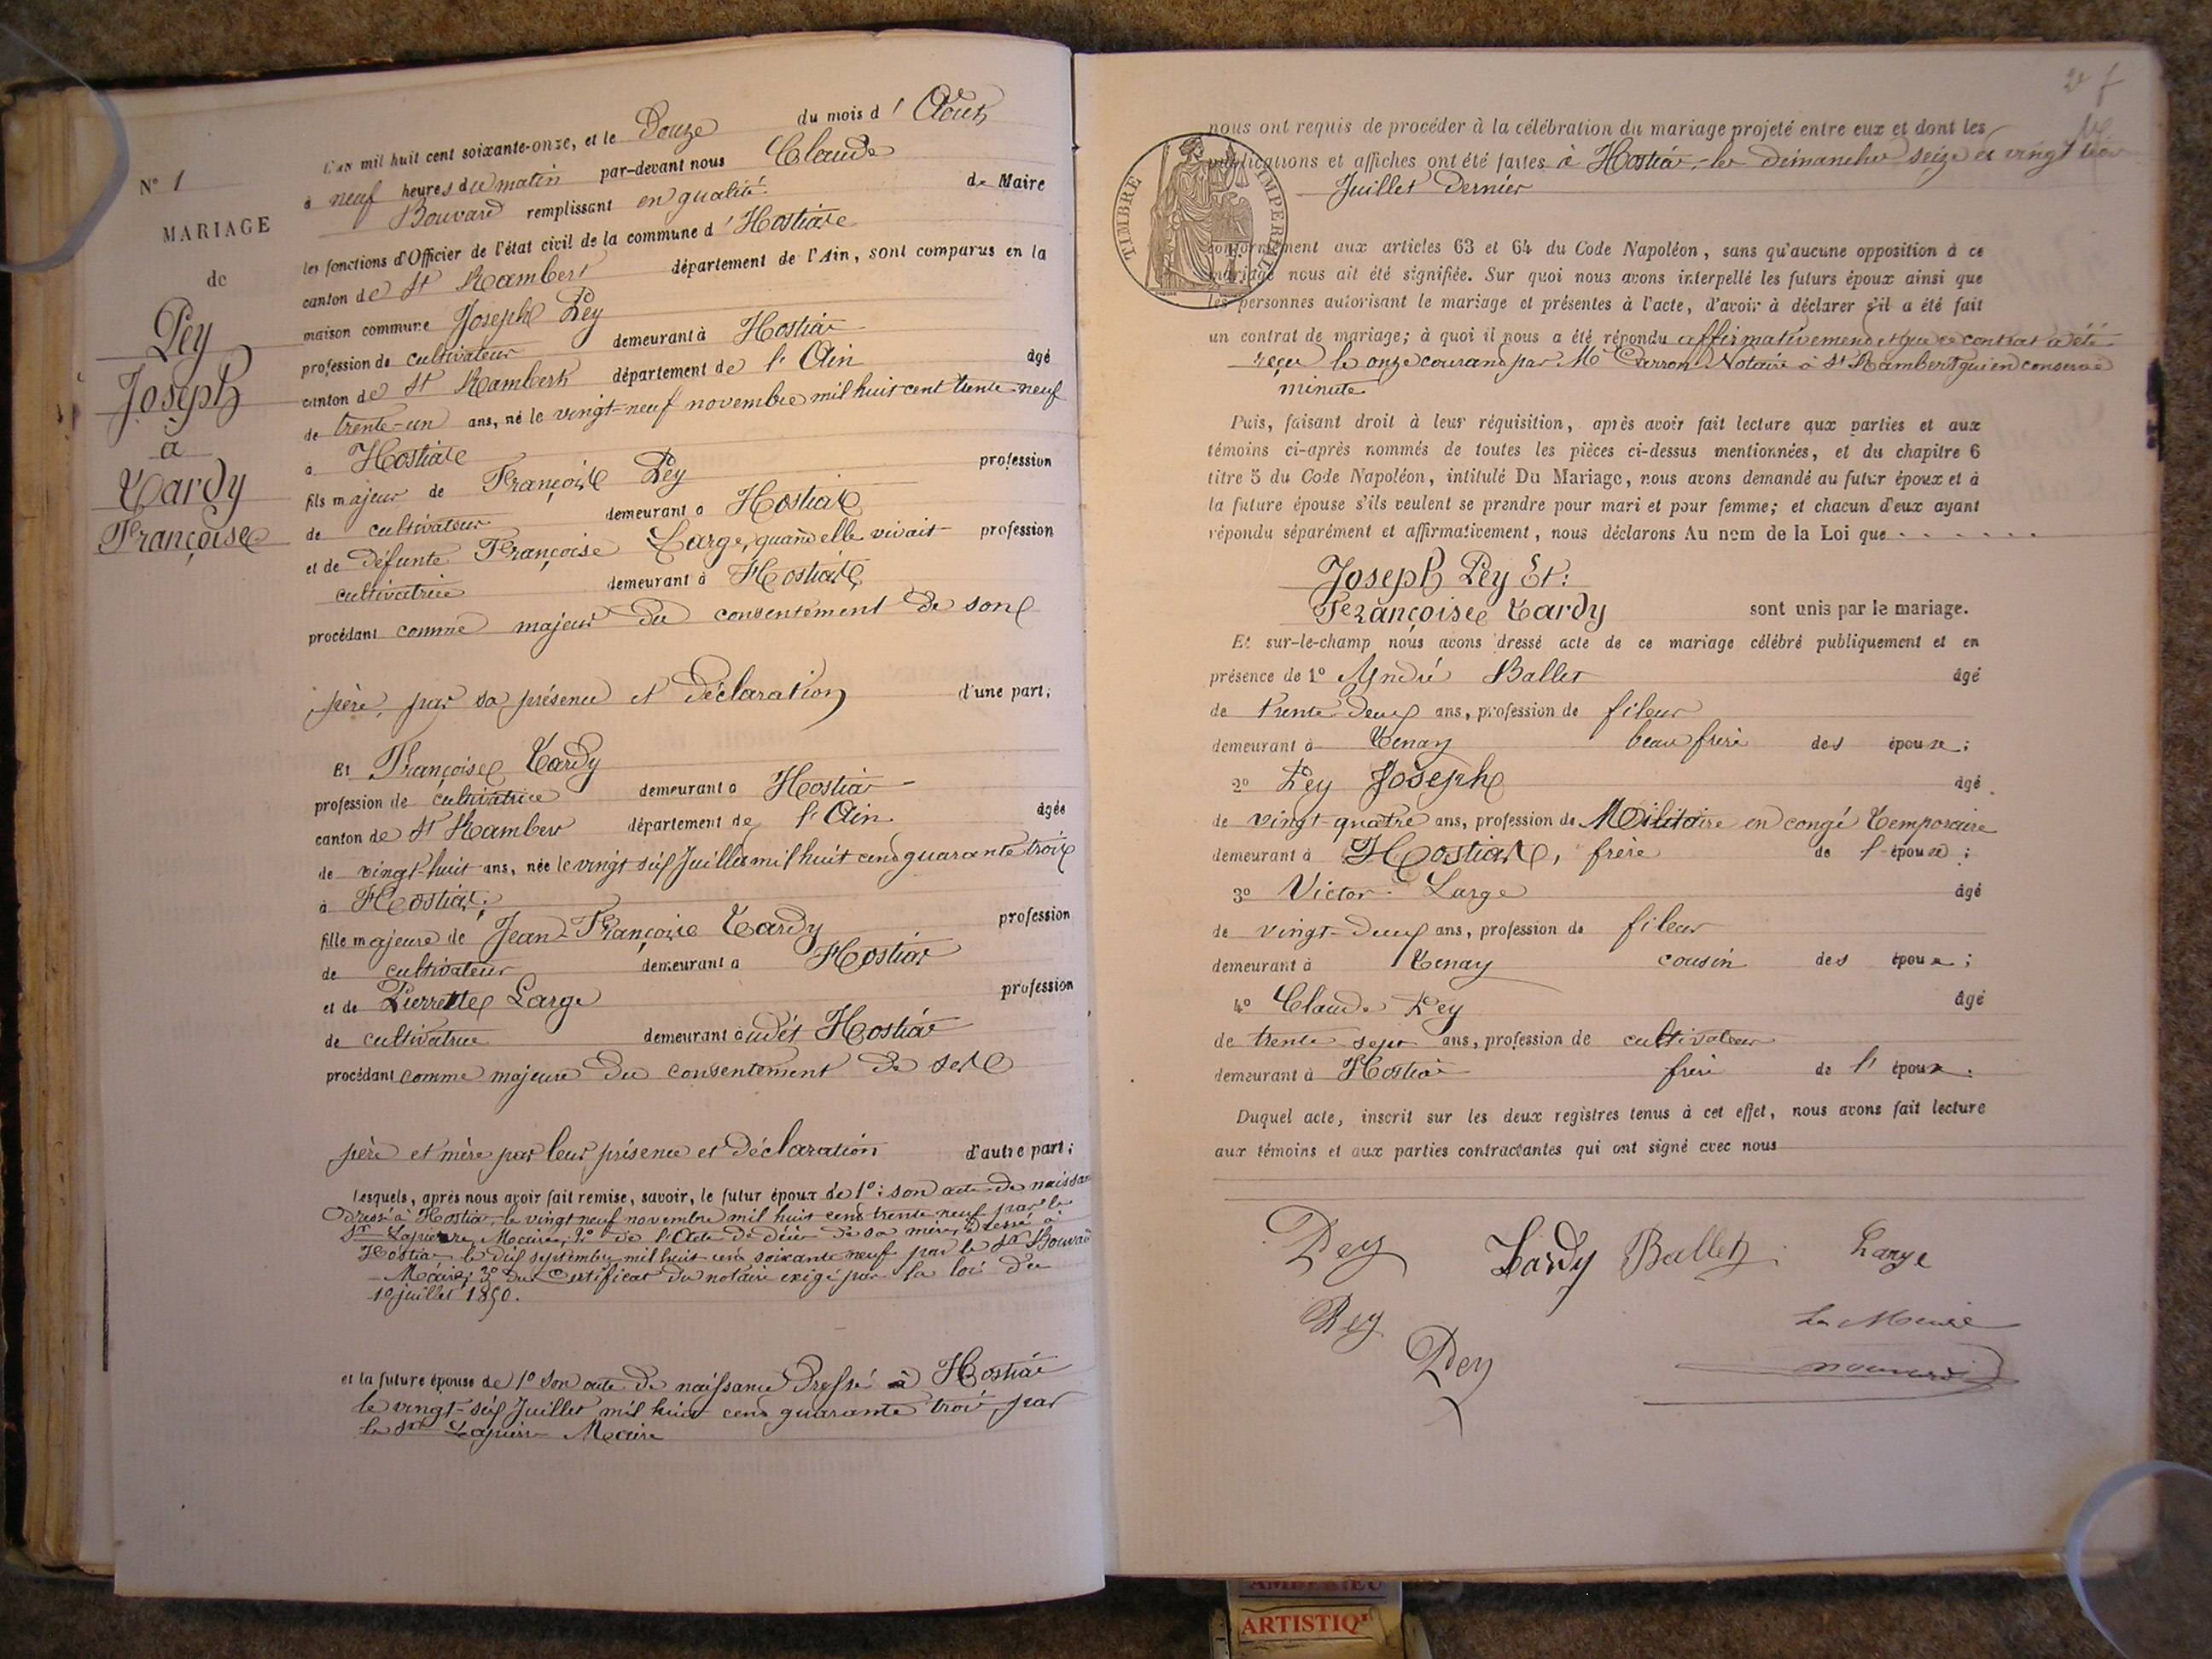 N° 1
MARIAGE
de
Pey
Joseph
a
Tardy
Françoise
L'an mil huit cent soixante-onze, et le Douze du mois d'Août
à neuf heures du matin par-devant nous Claude
Bouvard remplissant en qualité de Maire
les fonctions d'Officier de l'état civil de la commune d'Hostiaz
canton de St Rambert département de l'Ain, sont comparus en la
maison commune Joseph Pey
profession de cultivateur demeurant à Hostiaz
canton de St Rambert département de l'Ain âgé
de trente-un ans, né le vingt-neuf novembre mil huit cent trente-neuf
à Hostiaz
fils majeur de François Pey profession
de cultivateur demeurant à Hostiaz
et de défunte Françoise Large, quand elle vivait profession
cultivatrice demeurant à Hostiaz
procédant comme majeur du consentement de son
père, par sa présence et déclaration d'une part;
Et Françoise Tardy
profession de cultivatrice demeurant à Hostiaz
canton de St Rambert département de l'Ain âgée
de vingt-huit ans, née le vingt six Juillet mil huit cent quarante trois
à Hostiaz
fille majeure de Jean-François Tardy profession
de cultivateur demeurant à Hostiaz
et de Pierrette Large profession
de cultivatrice demeurant audit Hostiaz
procédant comme majeure du consentement de ses
père et mère par leur présence et déclaration d'autre part;
Lesquels, après nous avoir fait remise, savoir, le futur époux de 1°: son acte de naissance
Dressé à Hostiaz, le vingt neuf novembre mil huit cent trente neuf par le
Sr Lapierre, Maire; 2° de l'Acte de décès de sa mère, dressé à
Hostiaz le dix septembre mil huit cent soixante neuf par le Sr Bouvard
Maire; 3° du Certificat du notaire exigé par la loi du
10 juillet 1850.
et la future épouse de 1° son acte de naissance Dressé à Hostiaz
le vingt-six Juillet mil huit cent quarante trois par
le Sr Lapierre Maire
2e f
TIMBRE IMPERIAL
nous ont requis de procéder à la célébration du mariage projeté entre eux et dont les
publications et affiches ont été faites à Hostiaz les dimanches seize et vingt trois
Juillet dernier
conformément aux articles 63 et 64 du Code Napoléon, sans qu'aucune opposition à ce
mariage nous ait été signifiée. Sur quoi nous avons interpellé les futurs époux ainsi que
les personnes autorisant le mariage et présentes à l'acte, d'avoir à déclarer s'il a été fait
un contrat de mariage; à quoi il nous a été répondu affirmativement et que ce contrat a été
reçu le onze courant par Me Carron Notaire à St Rambert qui en conserve
minute
Puis, faisant droit à leur réquisition, après avoir fait lecture aux parties et aux
témoins ci-après nommés de toutes les pièces ci-dessus mentionnées, et du chapitre 6
titre 5 du Code Napoléon, intitulé Du Mariage, nous avons demandé au futur époux et à
la future épouse s'ils veulent se prendre pour mari et pour femme; et chacun d'eux ayant
répondu séparément et affirmativement, nous déclarons Au nom de la Loi que - - - - - - -
Joseph Pey Et:
Françoise Tardy sont unis par le mariage.
Et sur-le-champ nous avons dressé acte de ce mariage célébré publiquement et en
présence de 1° André Ballet âgé
de trente-deux ans, profession de fileur
demeurant à Tenay beau frère des époux;
2° Pey Joseph âgé
de vingt-quatre ans, profession de Militaire en congé Temporaire
demeurant à Hostiaz, frère de l'époux;
3° Victor Large âgé
de vingt-deux ans, profession de fileur
demeurant à Tenay cousin des époux;
4° Claude Pey âgé
de trente-sept ans, profession de cultivateur
demeurant à Hostiaz frère de l'époux.
Duquel acte, inscrit sur les deux registres tenus à cet effet, nous avons fait lecture
aux témoins et aux parties contractantes qui ont signé avec nous
Pey Tardy Ballet Large
Pey Le Maire
Pey Bouvard
AMBERIEU
ARTISTIQ